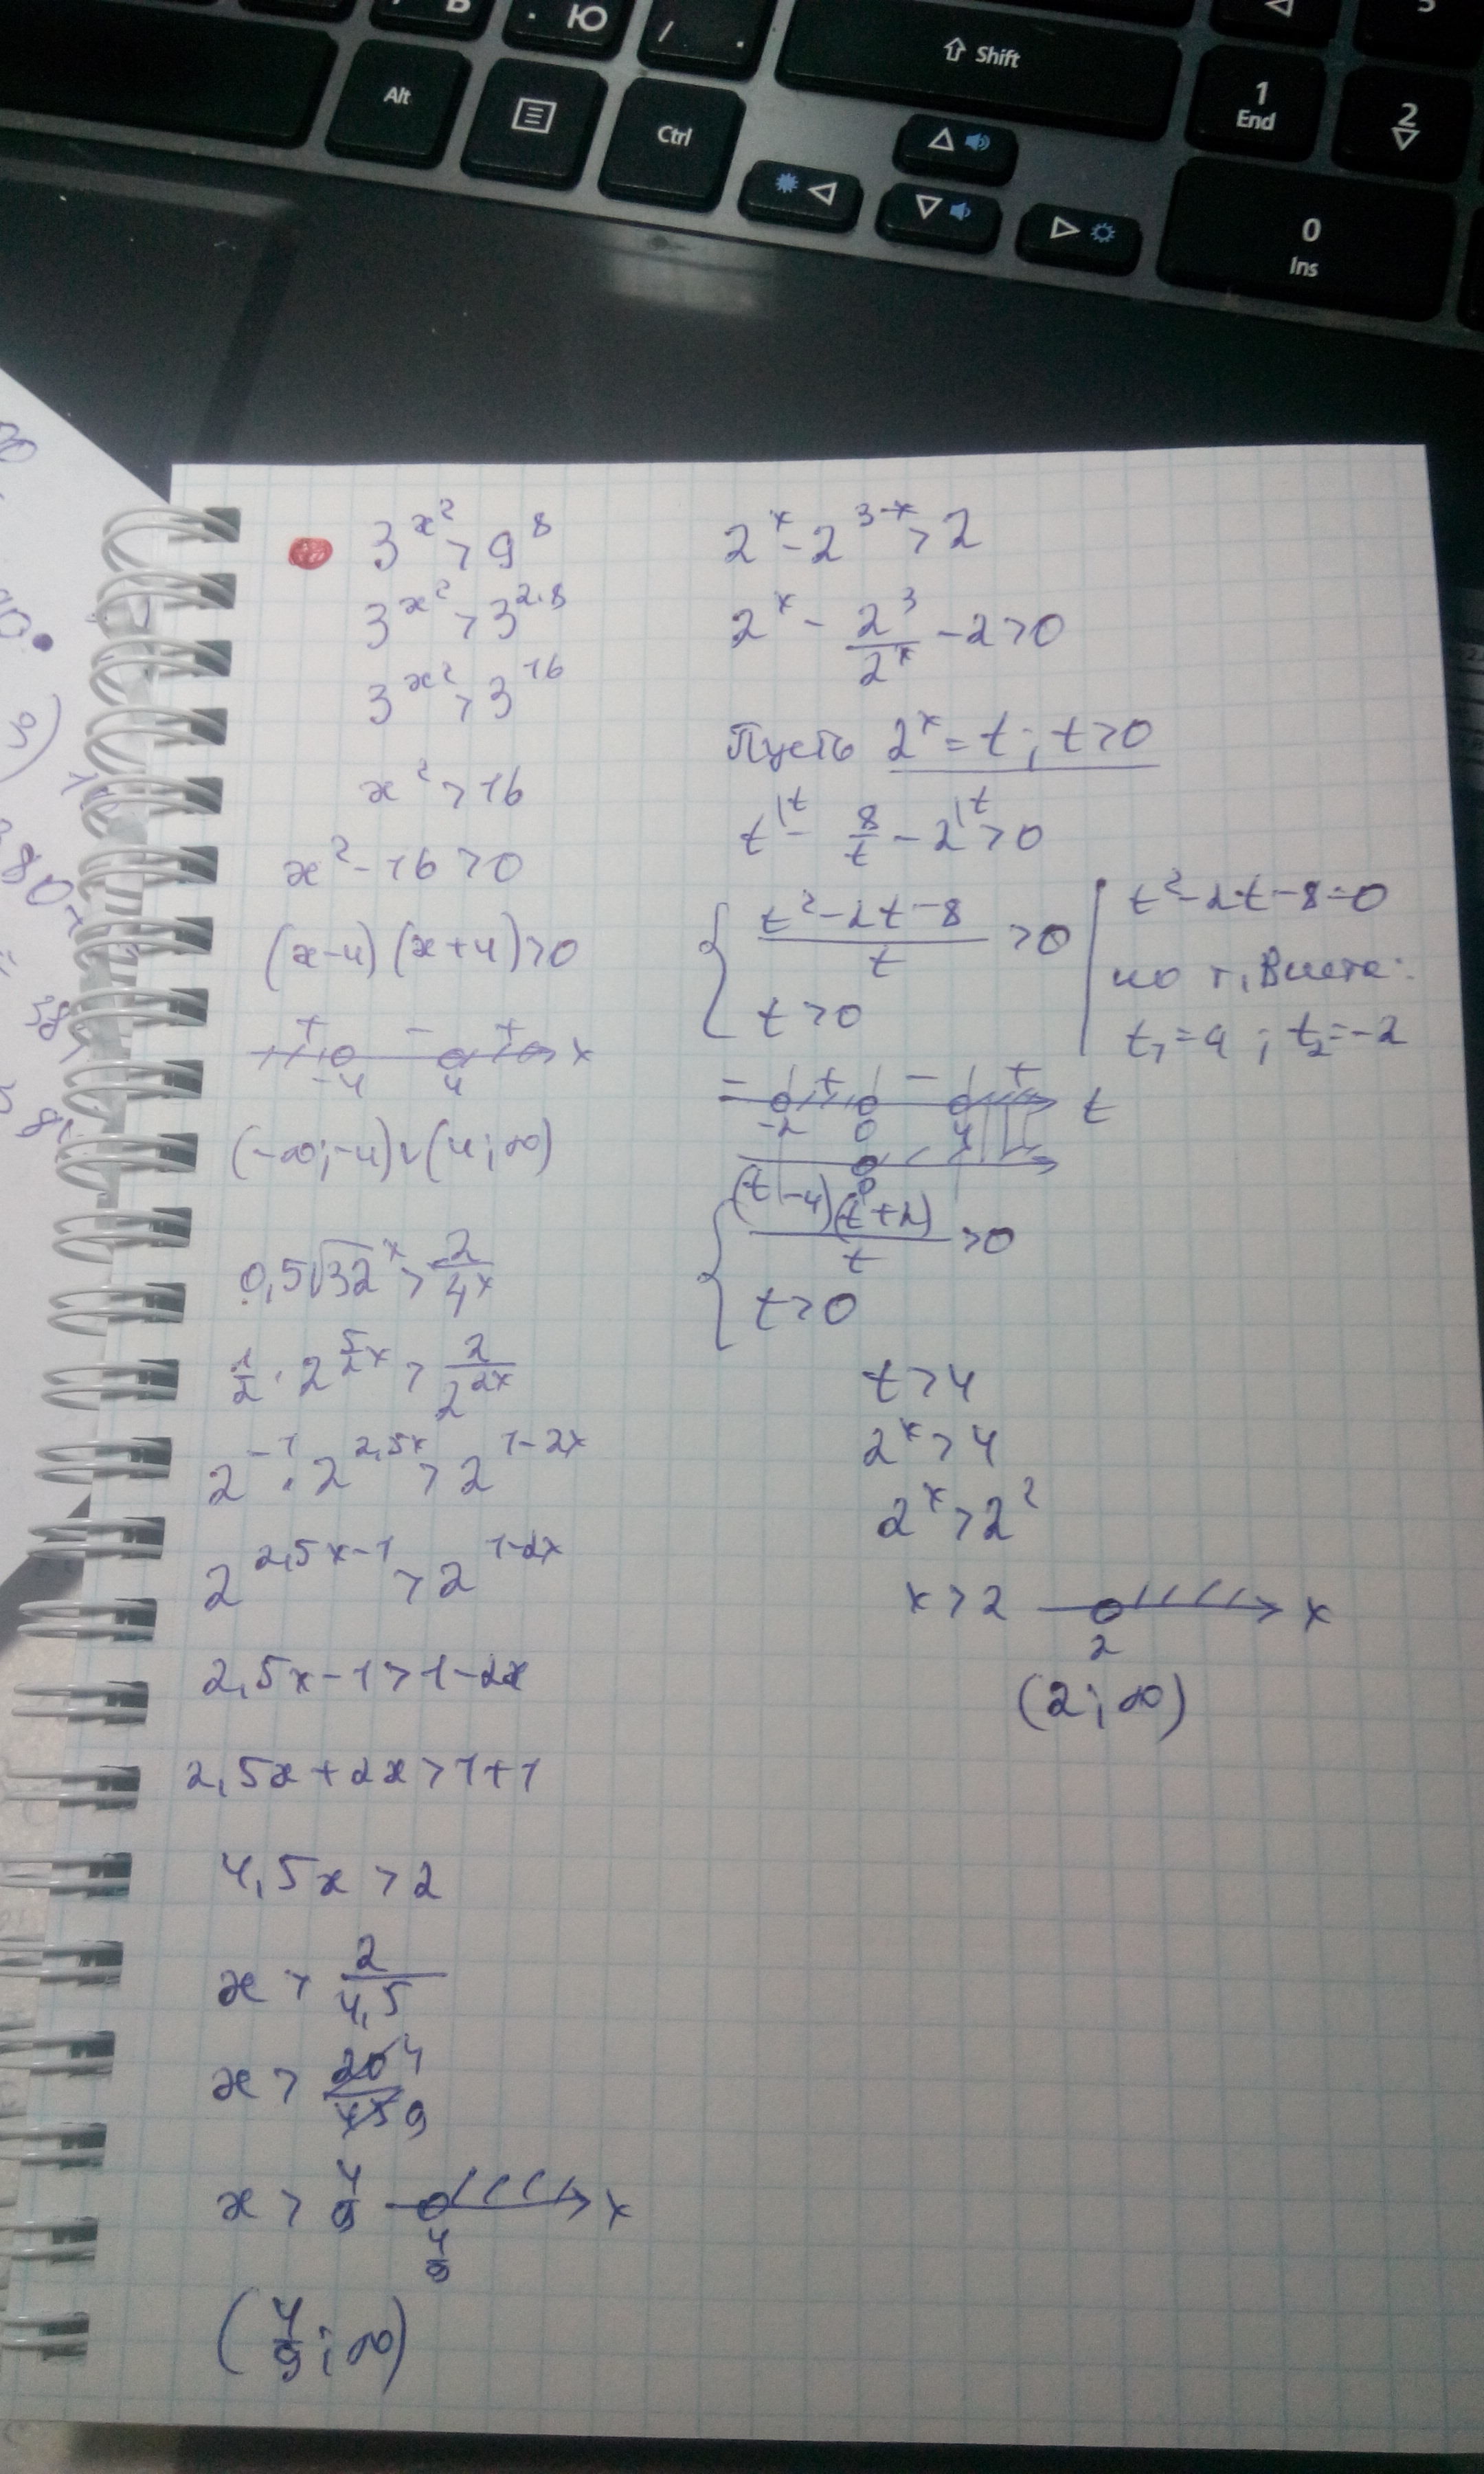 Ю
/ .
Shift
Alt
Ctrl
1
End
2
0
Ins
3^{x^2} > 9^8
3^{x^2} > 3^{2·8}
3^{x^2} > 3^{16}
x^2 > 16
x^2 - 16 > 0
(x-4)(x+4) > 0
+ - +
-4 4 x
(-∞; -4) ∪ (4; ∞)
0,5√32^x > 2/4^x
1/2 · 2^{5/2 x} > 2/2^{2x}
2^{-1} · 2^{2,5x} > 2^{1-2x}
2^{2,5x-1} > 2^{1-2x}
2,5x - 1 > 1 - 2x
2,5x + 2x > 1 + 1
4,5x > 2
x > 2/4,5
x > 20 4/45 9
x > 4/9 x
4/9
(4/9; ∞)
2^x - 2^{3-x} > 2
2^x - 2^3/2^x - 2 > 0
Пусть 2^x = t; t > 0
t^{|t} - 8/t - 2^{|t} > 0
{ (t^2 - 2t - 8)/t > 0
t > 0
t^2 - 2t - 8 = 0
по т. Виета:
t_1 = 4; t_2 = -2
- + - +
-2 0 4 t
0
{ (t-4)(t+2)/t > 0
t > 0
t > 4
2^x > 4
2^x > 2^2
x > 2 x
2
(2; ∞)